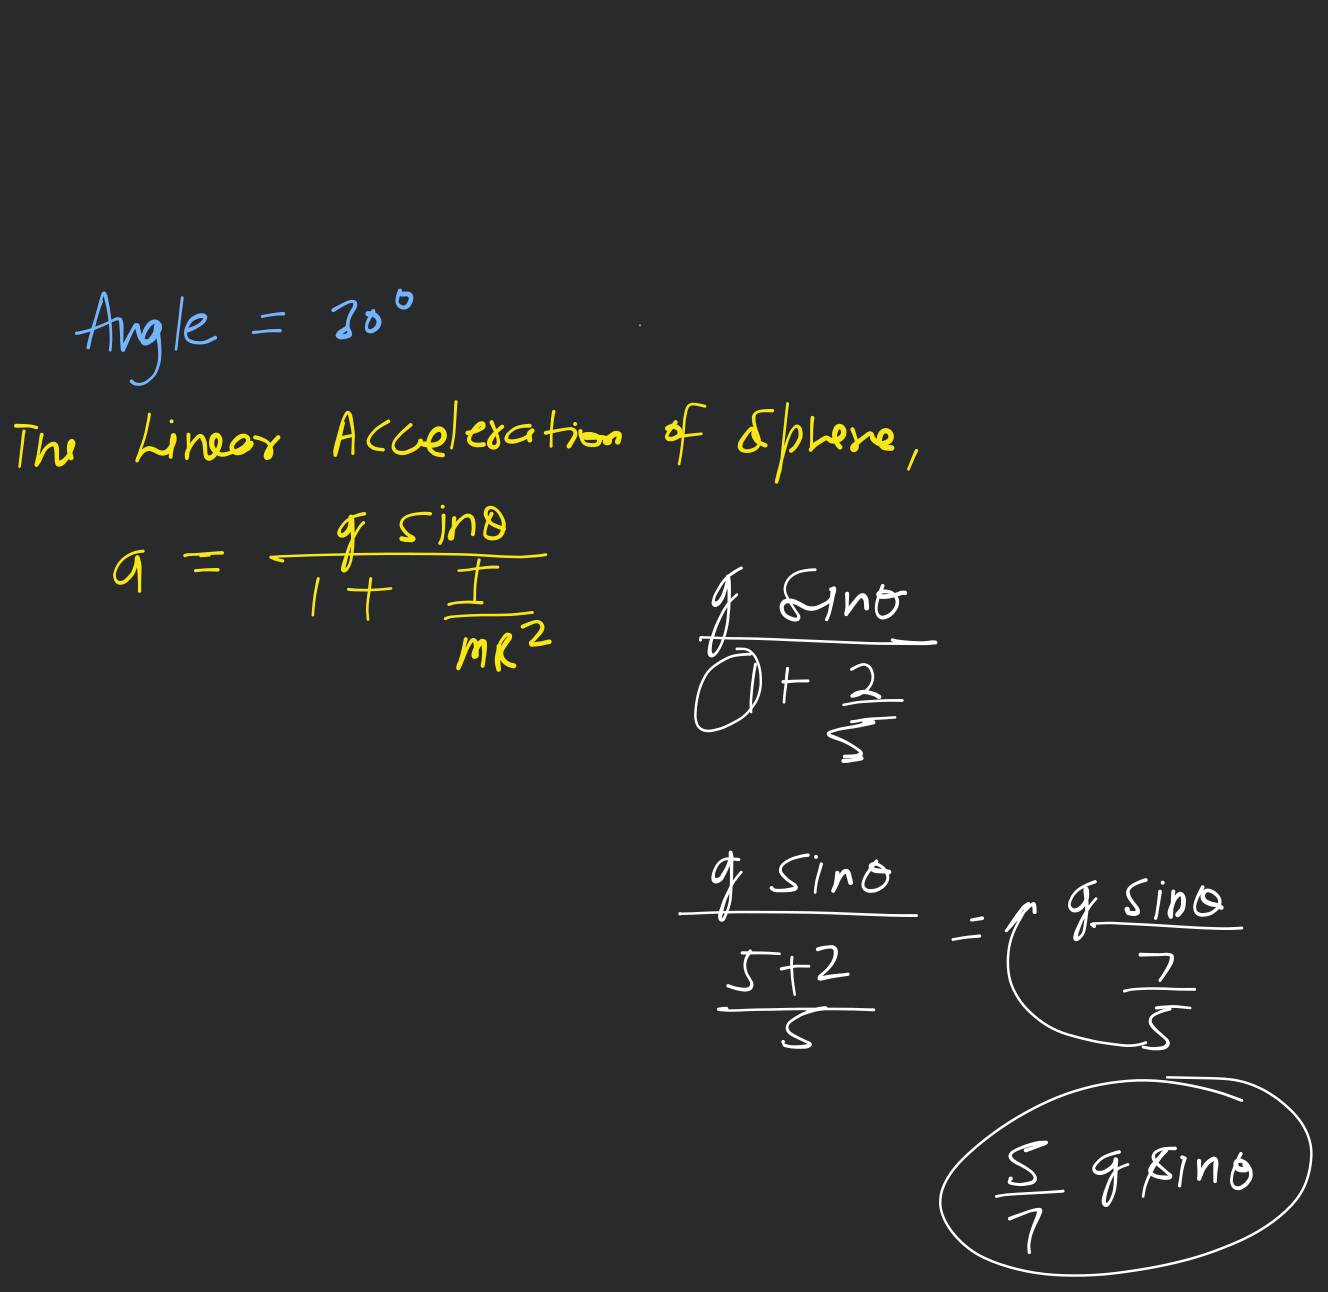 Angle = 30°
The Linear Acceleration of Sphere,
a = g sinθ / 1 + I / MR²
g sinθ / 1 + 2 / 5
g sinθ / 5+2 / 5 = g sinθ / 7 / 5
5 / 7 g sinθ